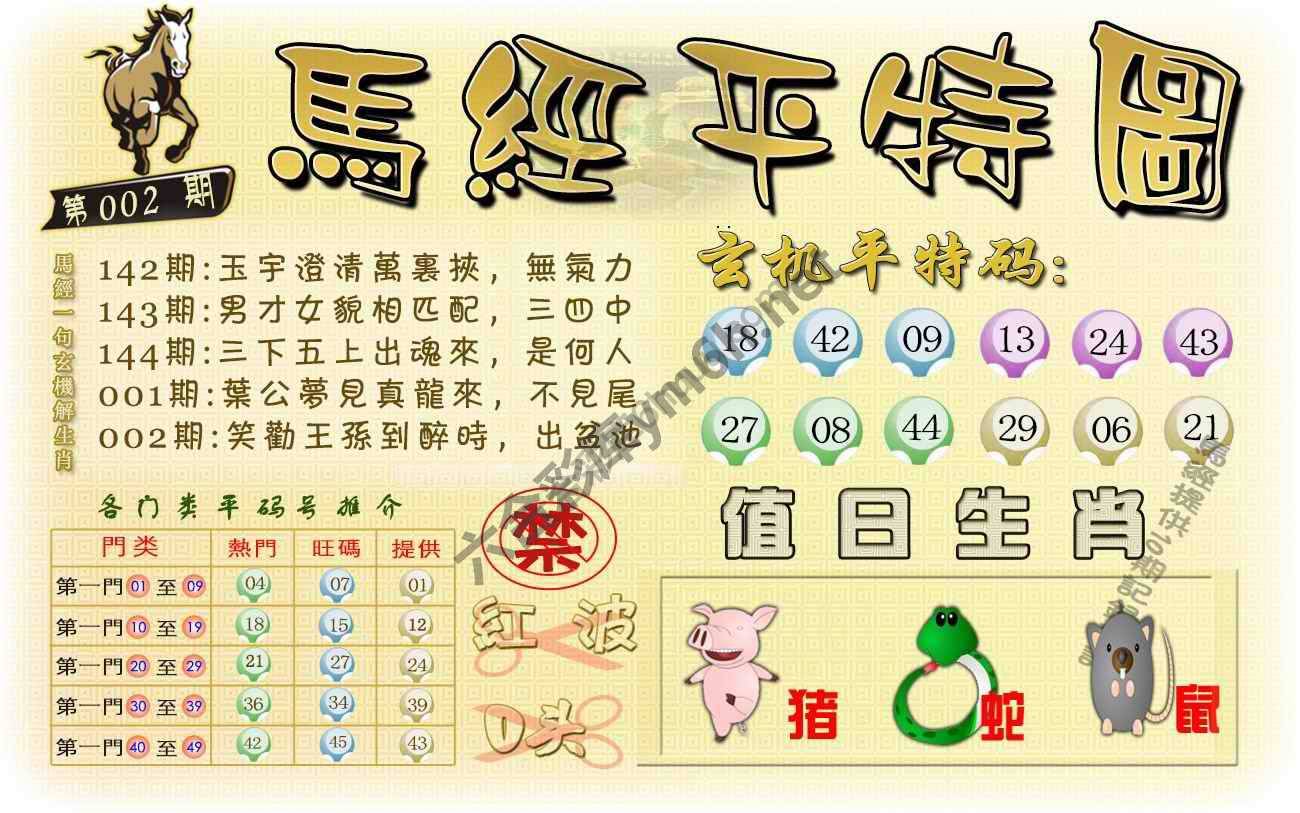 馬經平特圖
第002期
馬經一句玄機解生肖
142期:玉宇澄清萬裏挾，無氣力
143期:男才女貌相匹配，三四中
144期:三下五上出魂來，是何人
001期:葉公夢見真龍來，不見尾
002期:笑勸王孫到醉時，出盆池
玄机平特码:
18 42 09 13 24 43
27 08 44 29 06 21
各门类平码号推介
門类 熱門 旺碼 提供
第一門01至09 04 07 01
第一門10至19 18 15 12
第一門20至29 21 27 24
第一門30至39 36 34 39
第一門40至49 42 45 43
禁
紅波
0头
值日生肖
猪 蛇 鼠